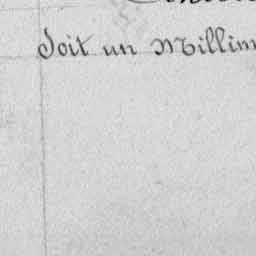 Soit un Millim